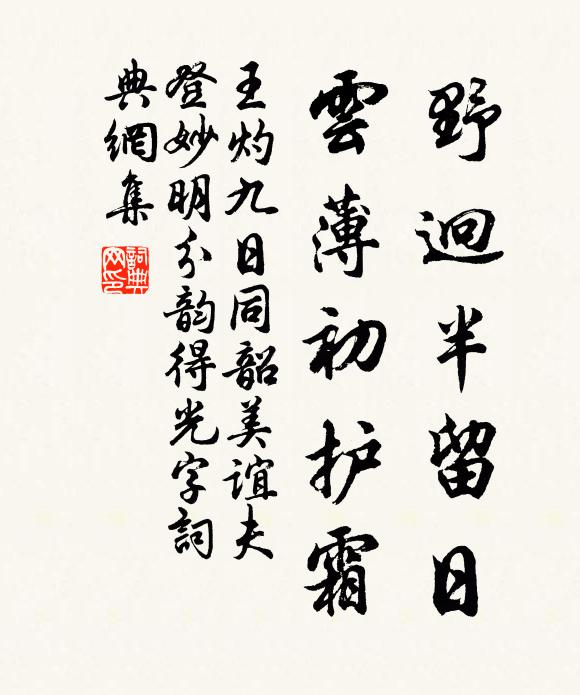 野迥半留日
雲薄初护霜
王灼九日同韶美誼夫
登妙明分韵得光字詞
典網集
詞典网印